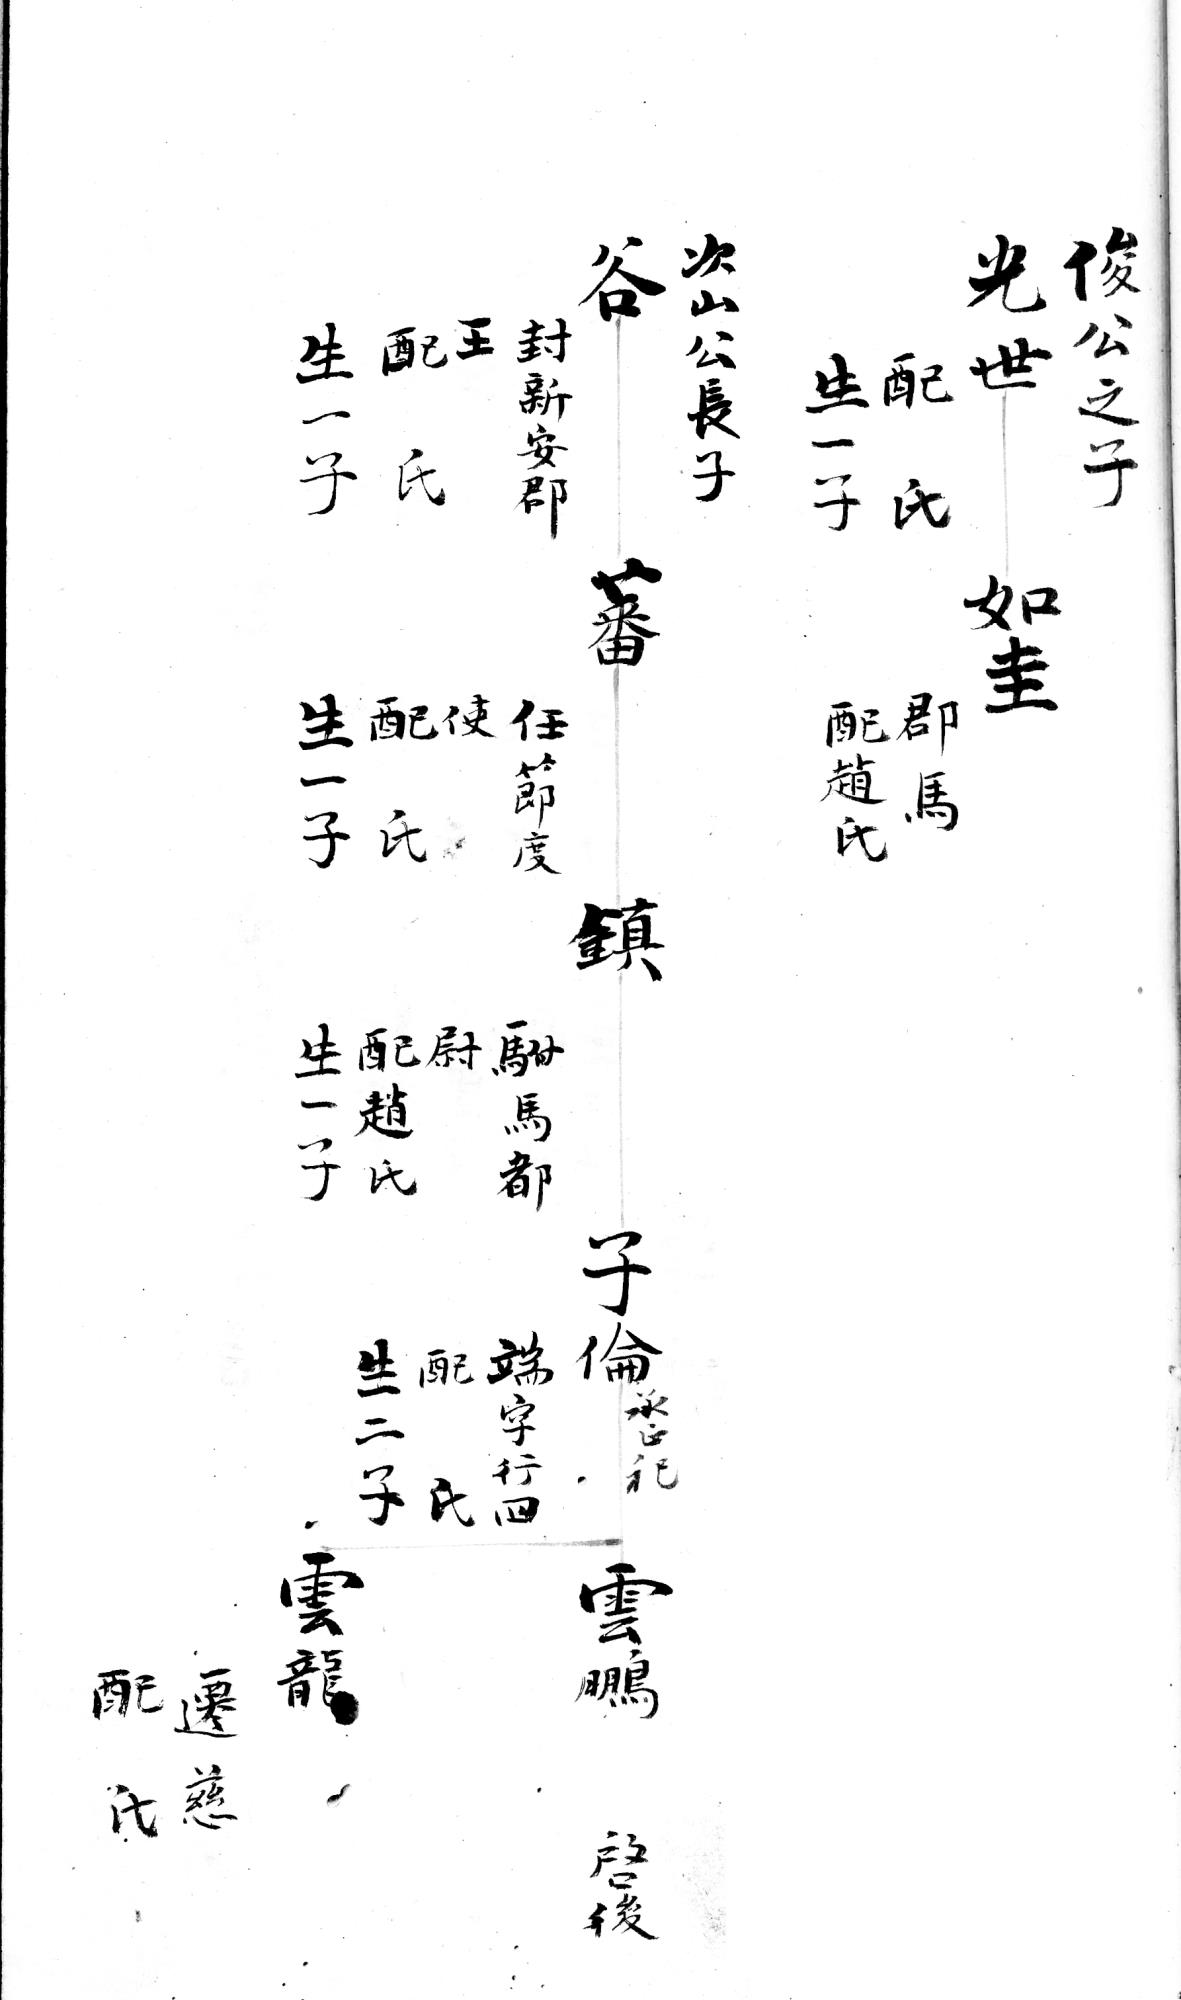 俊公之子
光世
配　氏
生一子
如圭
郡馬
配趙氏
次山公長子
谷
封新安郡
王
配　氏
生一子
蕃
任節度
使
配　氏
生一子
鎮
駙馬都
尉
配趙氏
生一子
子倫
承正祀
端字行四
配　氏
生二子
雲鵬
啓後
雲龍
遷慈
配　氏